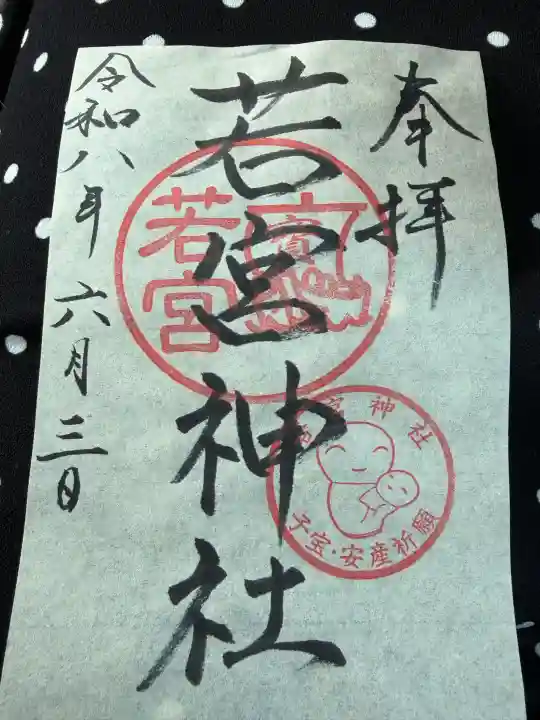 奉拝
若宮神社
令和八年 六月三日
若宮
宮神社
子宝・安産祈願